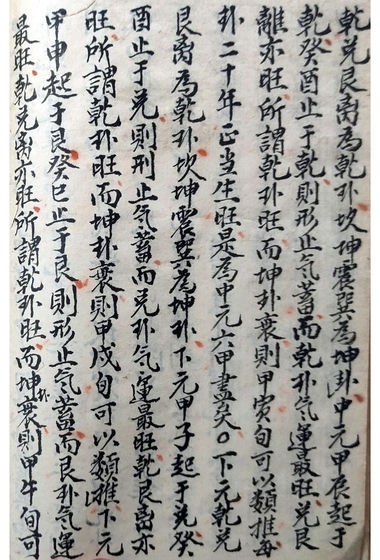 乾兌艮离為乾卦坎坤震巽為坤卦中元甲辰起于
乾癸酉止于乾則形止气蓄而乾卦气運最旺兌艮
離亦旺所謂乾卦旺而坤卦衰則甲寅旬可以類推每
卦二十年正当生旺是為中元六甲盡矣〇下元乾兌
艮离為乾卦坎坤震巽為坤卦下元甲子起于兌癸
酉止于兌則刑止气蓄而兌卦气運最旺乾艮离亦
旺所謂乾卦旺而坤卦衰則甲戌旬可以類推下元
甲申起于艮癸巳止于艮則形止气蓄而艮卦气運
最旺乾兌离亦旺所謂乾卦旺而坤卦衰則甲午旬可